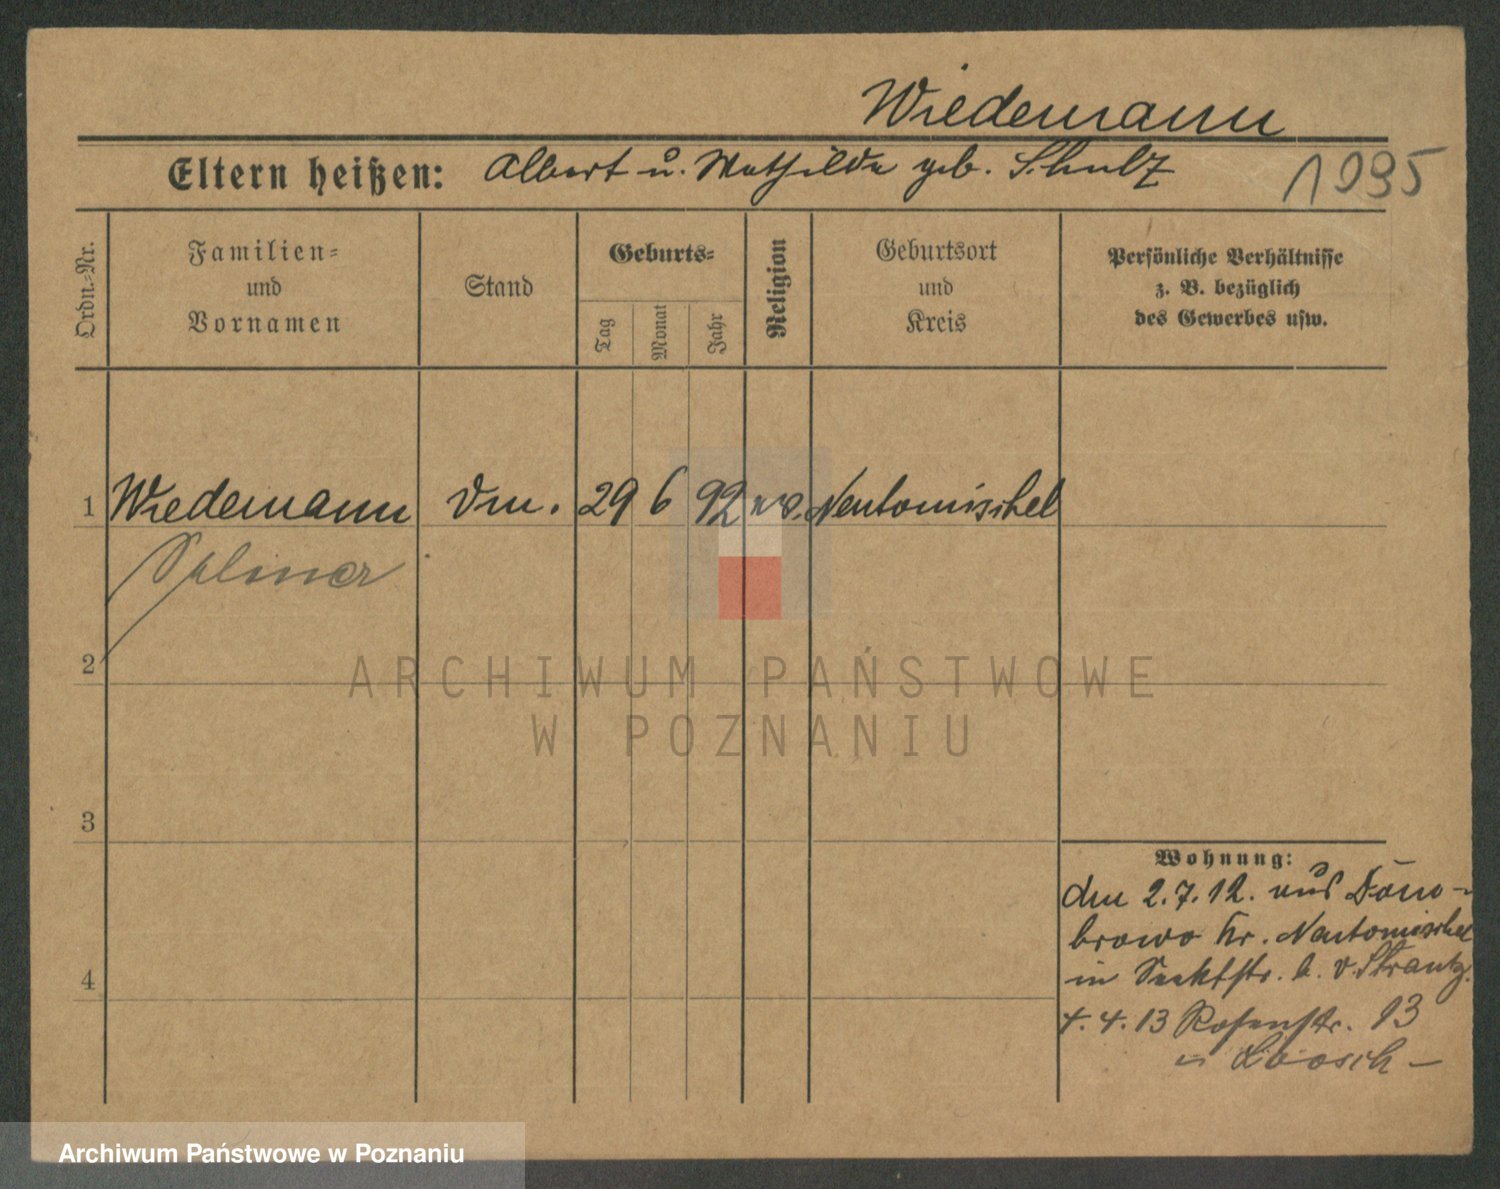 Wiedemann
Eltern heißen: Albert u. Mathilde geb. Schulz
1995
Ordn.-Nr.
Familien-
und
Vornamen
Stand
Geburts-
Tag
Monat
Jahr
Religion
Geburtsort
und
Kreis
Persönliche Verhältnisse
z. B. bezüglich
des Gewerbes usw.
1 Wiedemann 29 6 92 ev. Neutomischel
2
3
4
ARCHIWUM PAŃSTWOWE
W POZNANIU
Wohnung:
den 2.7.12. aus
browo Kr. Neutomischel
in b. v. Strantz.
4.4.13 Rosenstr. 13
Archiwum Państwowe w Poznaniu